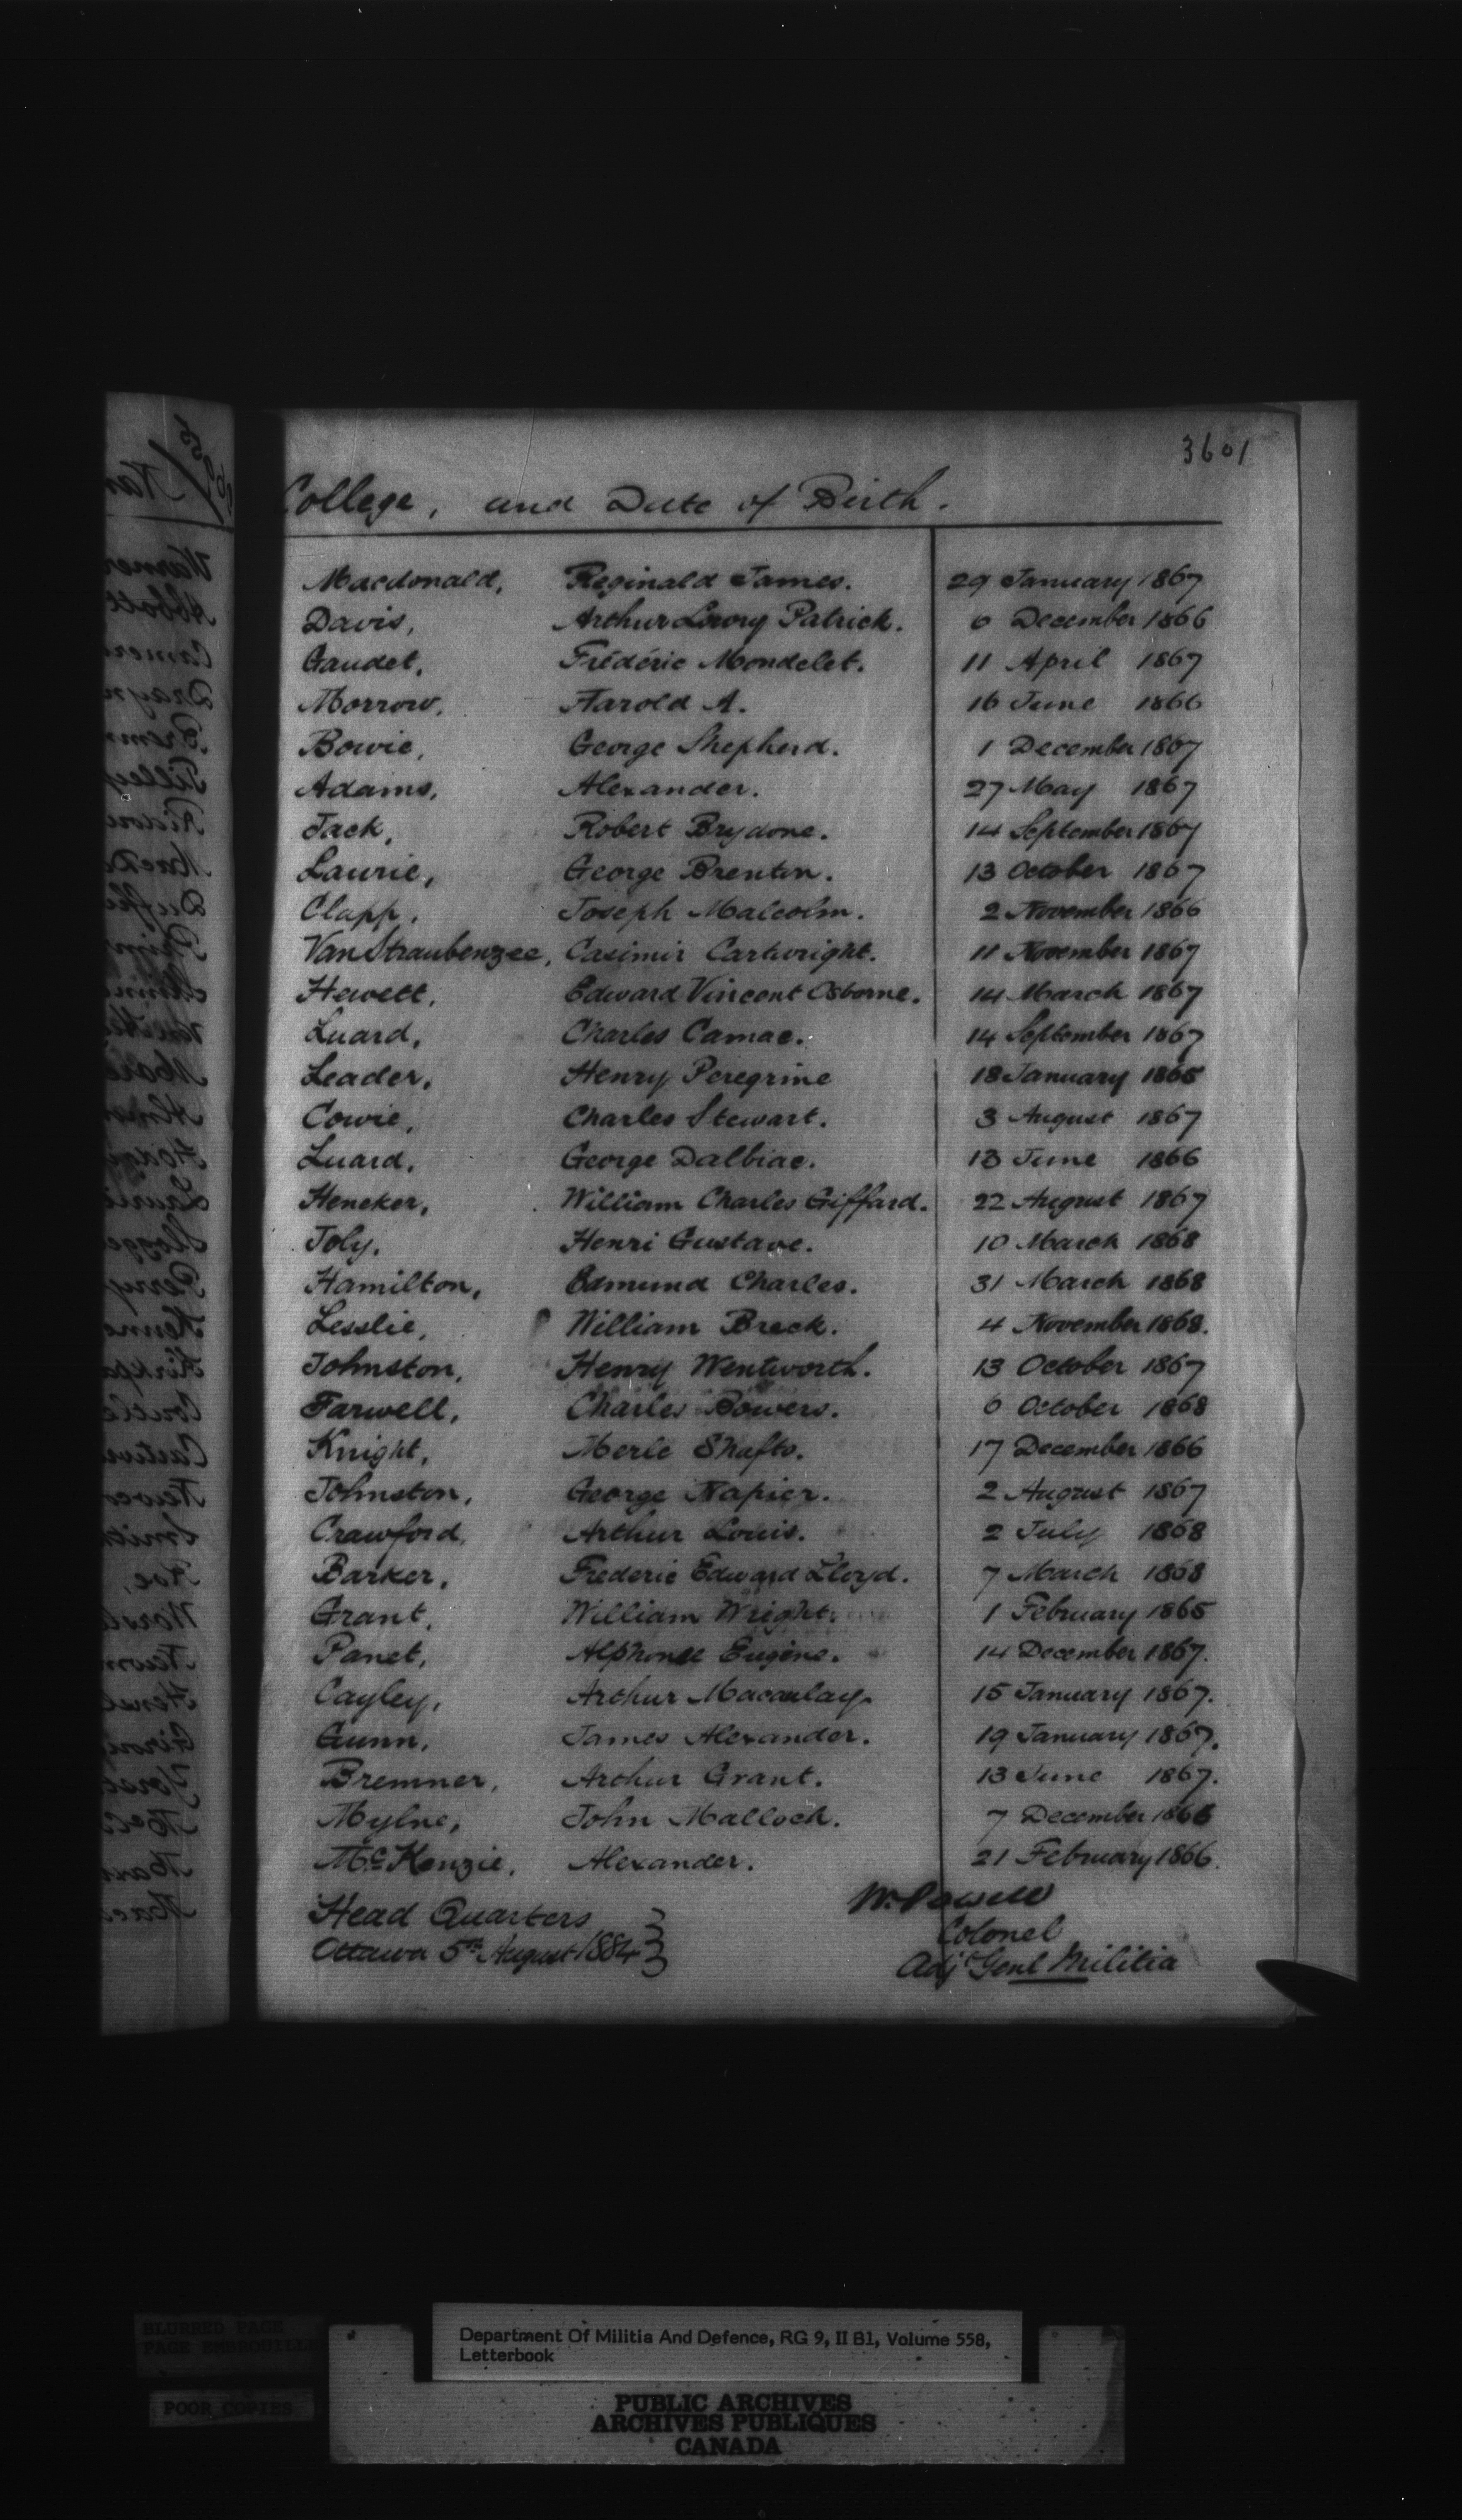 3601
College, and Date of Birth.
Macdonald, Reginald James. 29 January 1867
Davis, Arthur Lowry Patrick. 6 December 1866
Gaudet, Frédéric Mondelet. 11 April 1867
Morrow, Harold A. 16 June 1866
Bowie, George Shepherd. 1 December 1867
Adams, Alexander. 27 May 1867
Jack, Robert Brydone. 14 September 1867
Laurie, George Brenton. 13 October 1867
Clapp, Joseph Malcolm. 2 November 1866
Van Straubenzee, Casimir Cartwright. 11 November 1867
Hewett, Edward Vincent Osborne. 14 March 1867
Luard, Charles Camac. 14 September 1867
Leader, Henry Peregrine 18 January 1865
Cowie, Charles Stewart. 3 August 1867
Luard, George Dalbiac. 13 June 1866
Heneker, William Charles Giffard. 22 August 1867
Joly, Henri Gustave. 10 March 1868
Hamilton, Edmund Charles. 31 March 1868
Lesslie, William Breck. 4 November 1868.
Johnston, Henry Wentworth. 13 October 1867
Farwell, Charles Bowers. 6 October 1868
Knight, Merle Shafto. 17 December 1866
Johnston, George Napier. 2 August 1867
Crawford, Arthur Louis. 2 July 1868
Barker, Frederic Edward Lloyd. 7 March 1868
Grant, William Wright. 1 February 1865
Panet, Alphonse Eugène. 14 December 1867.
Cayley, Arthur Macaulay. 15 January 1867.
Gunn, James Alexander. 19 January 1867.
Bremner, Arthur Grant. 13 June 1867.
Mylne, John Malloch. 7 December 1866
McKenzie, Alexander. 21 February 1866.
Head Quarters
Ottawa 5th August 1884
W. Powell
Colonel
Adjt Genl Militia
Department Of Militia And Defence, RG 9, II B1, Volume 558,
Letterbook
BLURRED PAGE
PAGE EMBROUILLE
POOR COPIES
PUBLIC ARCHIVES
ARCHIVES PUBLIQUES
CANADA